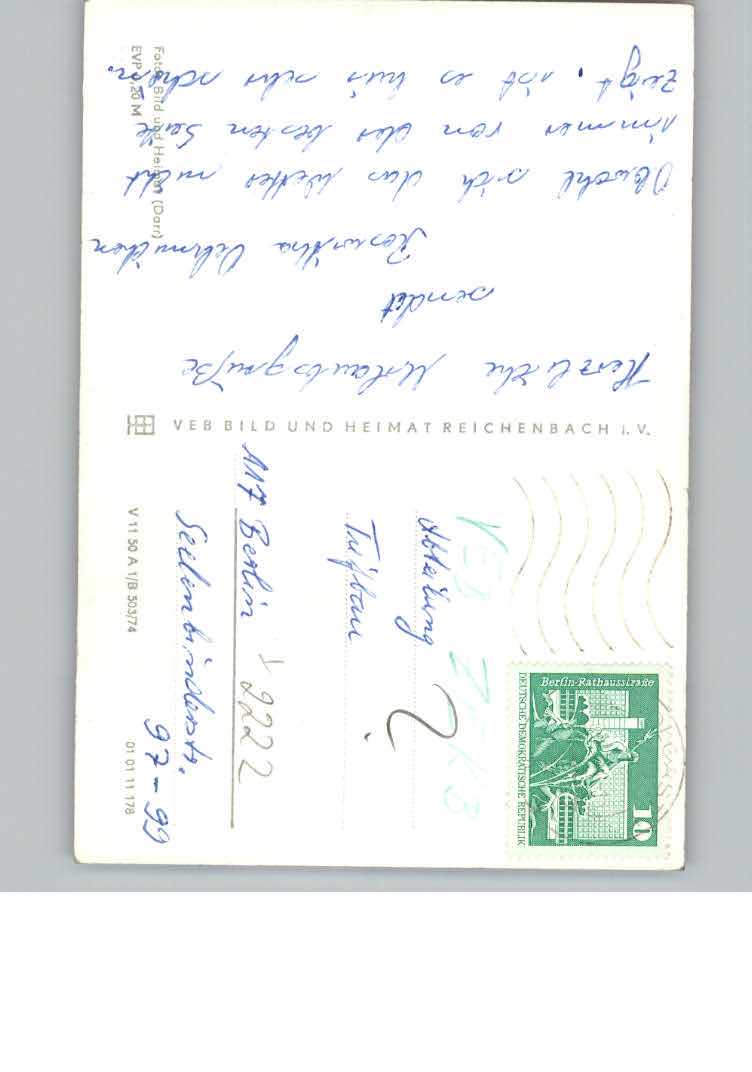 Herzliche Urlaubsgrüße
sendet
Roswitha Oehmichen
Obwohl sich das Wetter nicht
immer von der besten Seite
zeigt, ist es hier sehr schön.
Foto: Bild und Heimat (Darr)
EVP 0,20 M
VEB BILD UND HEIMAT REICHENBACH i. V.
V 11 50 A 1/B 503/74
01 01 11 178
VEB
Abteilung
Tiefbau
117 Berlin
9222
Seelenbinderstr.
97-99
Berlin-Rathausstraße
10
DEUTSCHE DEMOKRATISCHE REPUBLIK